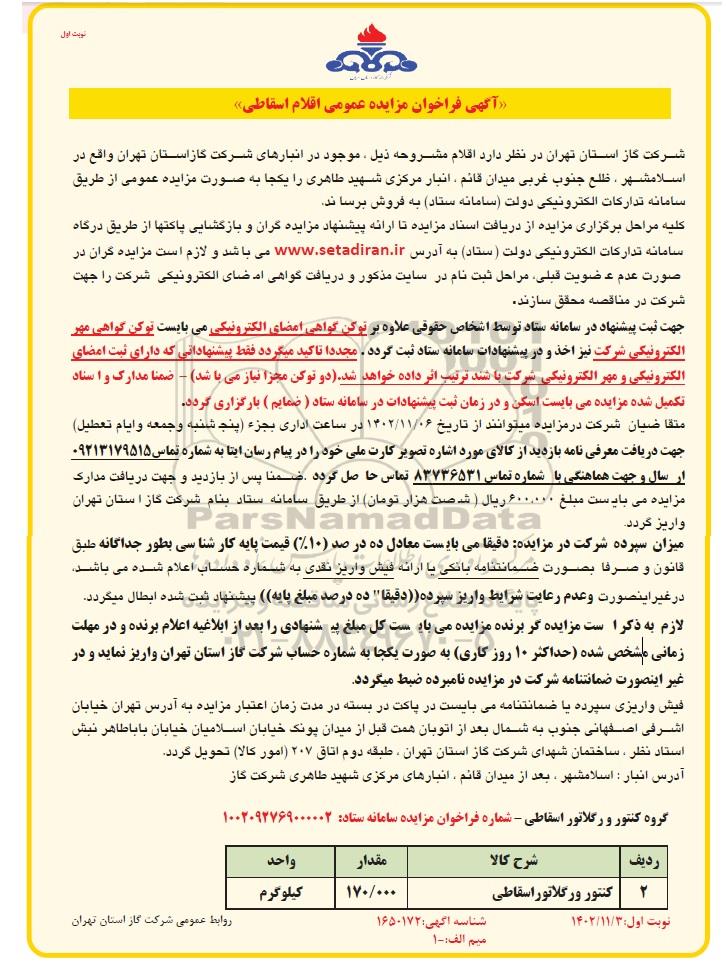 نوبت اول
«آگهی فراخوان مزایده عمومی اقلام اسقاطی»
شرکت گاز استان تهران در نظر دارد اقلام مشروحه ذیل ، موجود در انبارهای شرکت گازاستان تهران واقع در
اسلامشهر ، ظلع جنوب غربی میدان قائم ، انبار مرکزی شهید طاهری را یکجا به صورت مزایده عمومی از طریق
سامانه تدارکات الکترونیکی دولت (سامانه ستاد) به فروش برساند.
کلیه مراحل برگزاری مزایده از دریافت اسناد مزایده تا ارائه پیشنهاد مزایده گران و بازگشایی پاکتها از طریق درگاه
سامانه تدارکات الکترونیکی دولت ( ستاد) به آدرس www.setadiran.ir می باشد و لازم است مزایده گران در
صورت عدم عضویت قبلی، مراحل ثبت نام در سایت مذکور و دریافت گواهی امضای الکترونیکی شرکت را جهت
شرکت در مناقصه محقق سازند.
جهت ثبت پیشنهاد در سامانه ستاد توسط اشخاص حقوقی علاوه بر توکن گواهی امضای الکترونیکی می بایست توکن گواهی مهر
الکترونیکی شرکت نیز اخذ و در پیشنهادات سامانه ستاد ثبت گردد . مجددا تاکید میگردد فقط پیشنهاداتی که دارای ثبت امضای
الکترونیکی و مهر الکترونیکی شرکت با شند ترتیب اثر داده خواهد شد.(دو توکن مجزا نیاز می با شد) – ضمنا مدارک و اسناد
تکمیل شده مزایده می بایست اسکن و در زمان ثبت پیشنهادات در سامانه ستاد ( ضمایم ) بارگزاری گردد.
متقاضیان شرکت درمزایده میتوانند از تاریخ ۱۴۰۲/۱۱/۰۶ در ساعات اداری بجزء (پنجشنبه وجمعه وایام تعطیل)
جهت دریافت معرفی نامه بازدید از کالای مورد اشاره تصویر کارت ملی خود را در پیام رسان ایتا به شماره تماس۰۹۲۱۳۱۷۹۵۱۵
ارسال و جهت هماهنگی با شماره تماس ۸۳۷۳۶۵۳۱ تماس حاصل گردد .ضمنا پس از بازدید و جهت دریافت مدارک
مزایده می بایست مبلغ ۶۰۰،۰۰۰ ریال ( شصت هزار تومان) از طریق سامانه ستاد بنام شرکت گاز استان تهران
واریز گردد.
میزان سپرده شرکت در مزایده: دقیقا می بایست معادل ده در صد (۱۰%) قیمت پایه کارشناسی بطور جداگانه طبق
قانون و صرفا بصورت ضمانتنامه بانکی یا ارائه فیش واریز نقدی به شماره حساب اعلام شده می باشد،
درغیراینصورت وعدم رعایت شرایط واریز سپرده((دقیقا" ده درصد مبلغ پایه)) پیشنهاد ثبت شده ابطال میگردد.
لازم به ذکر است مزایده گر برنده مزایده می بایست کل مبلغ پیشنهادی را بعد از ابلاغیه اعلام برنده و در مهلت
زمانی مشخص شده (حداکثر ۱۰ روز کاری) به صورت یکجا به شماره حساب شرکت گاز استان تهران واریز نماید و در
غیر اینصورت ضمانتنامه شرکت در مزایده نامبرده ضبط میگردد.
فیش واریزی سپرده یا ضمانتنامه می بایست در پاکت در بسته در مدت زمان اعتبار مزایده به آدرس تهران خیابان
اشرفی اصفهانی جنوب به شمال بعد از اتوبان همت قبل از میدان پونک خیابان اسلامیان خیابان باباطاهر نبش
استاد نظر ، ساختمان شهدای شرکت گاز استان تهران ، طبقه دوم اتاق ۲۰۷ (امور کالا) تحویل گردد.
آدرس انبار : اسلامشهر ، بعد از میدان قائم ، انبارهای مرکزی شهید طاهری شرکت گاز
گروه کنتور و رگلاتور اسقاطی – شماره فراخوان مزایده سامانه ستاد: ۱۰۰۲۰۹۲۷۶۹۰۰۰۰۰۲
ردیف شرح کالا مقدار واحد
۲ کنتور ورگلاتوراسقاطی ۱۷۰/۰۰۰ کیلوگرم
نوبت اول:۱۴۰۲/۱۱/۳ شناسه اگهی:۱۶۵۰۱۷۲ روابط عمومی شرکت گاز استان تهران
میم الف:-۱
ParsNamadData
۰۲۱-۸۸۳۴۹۶۷۰-۵